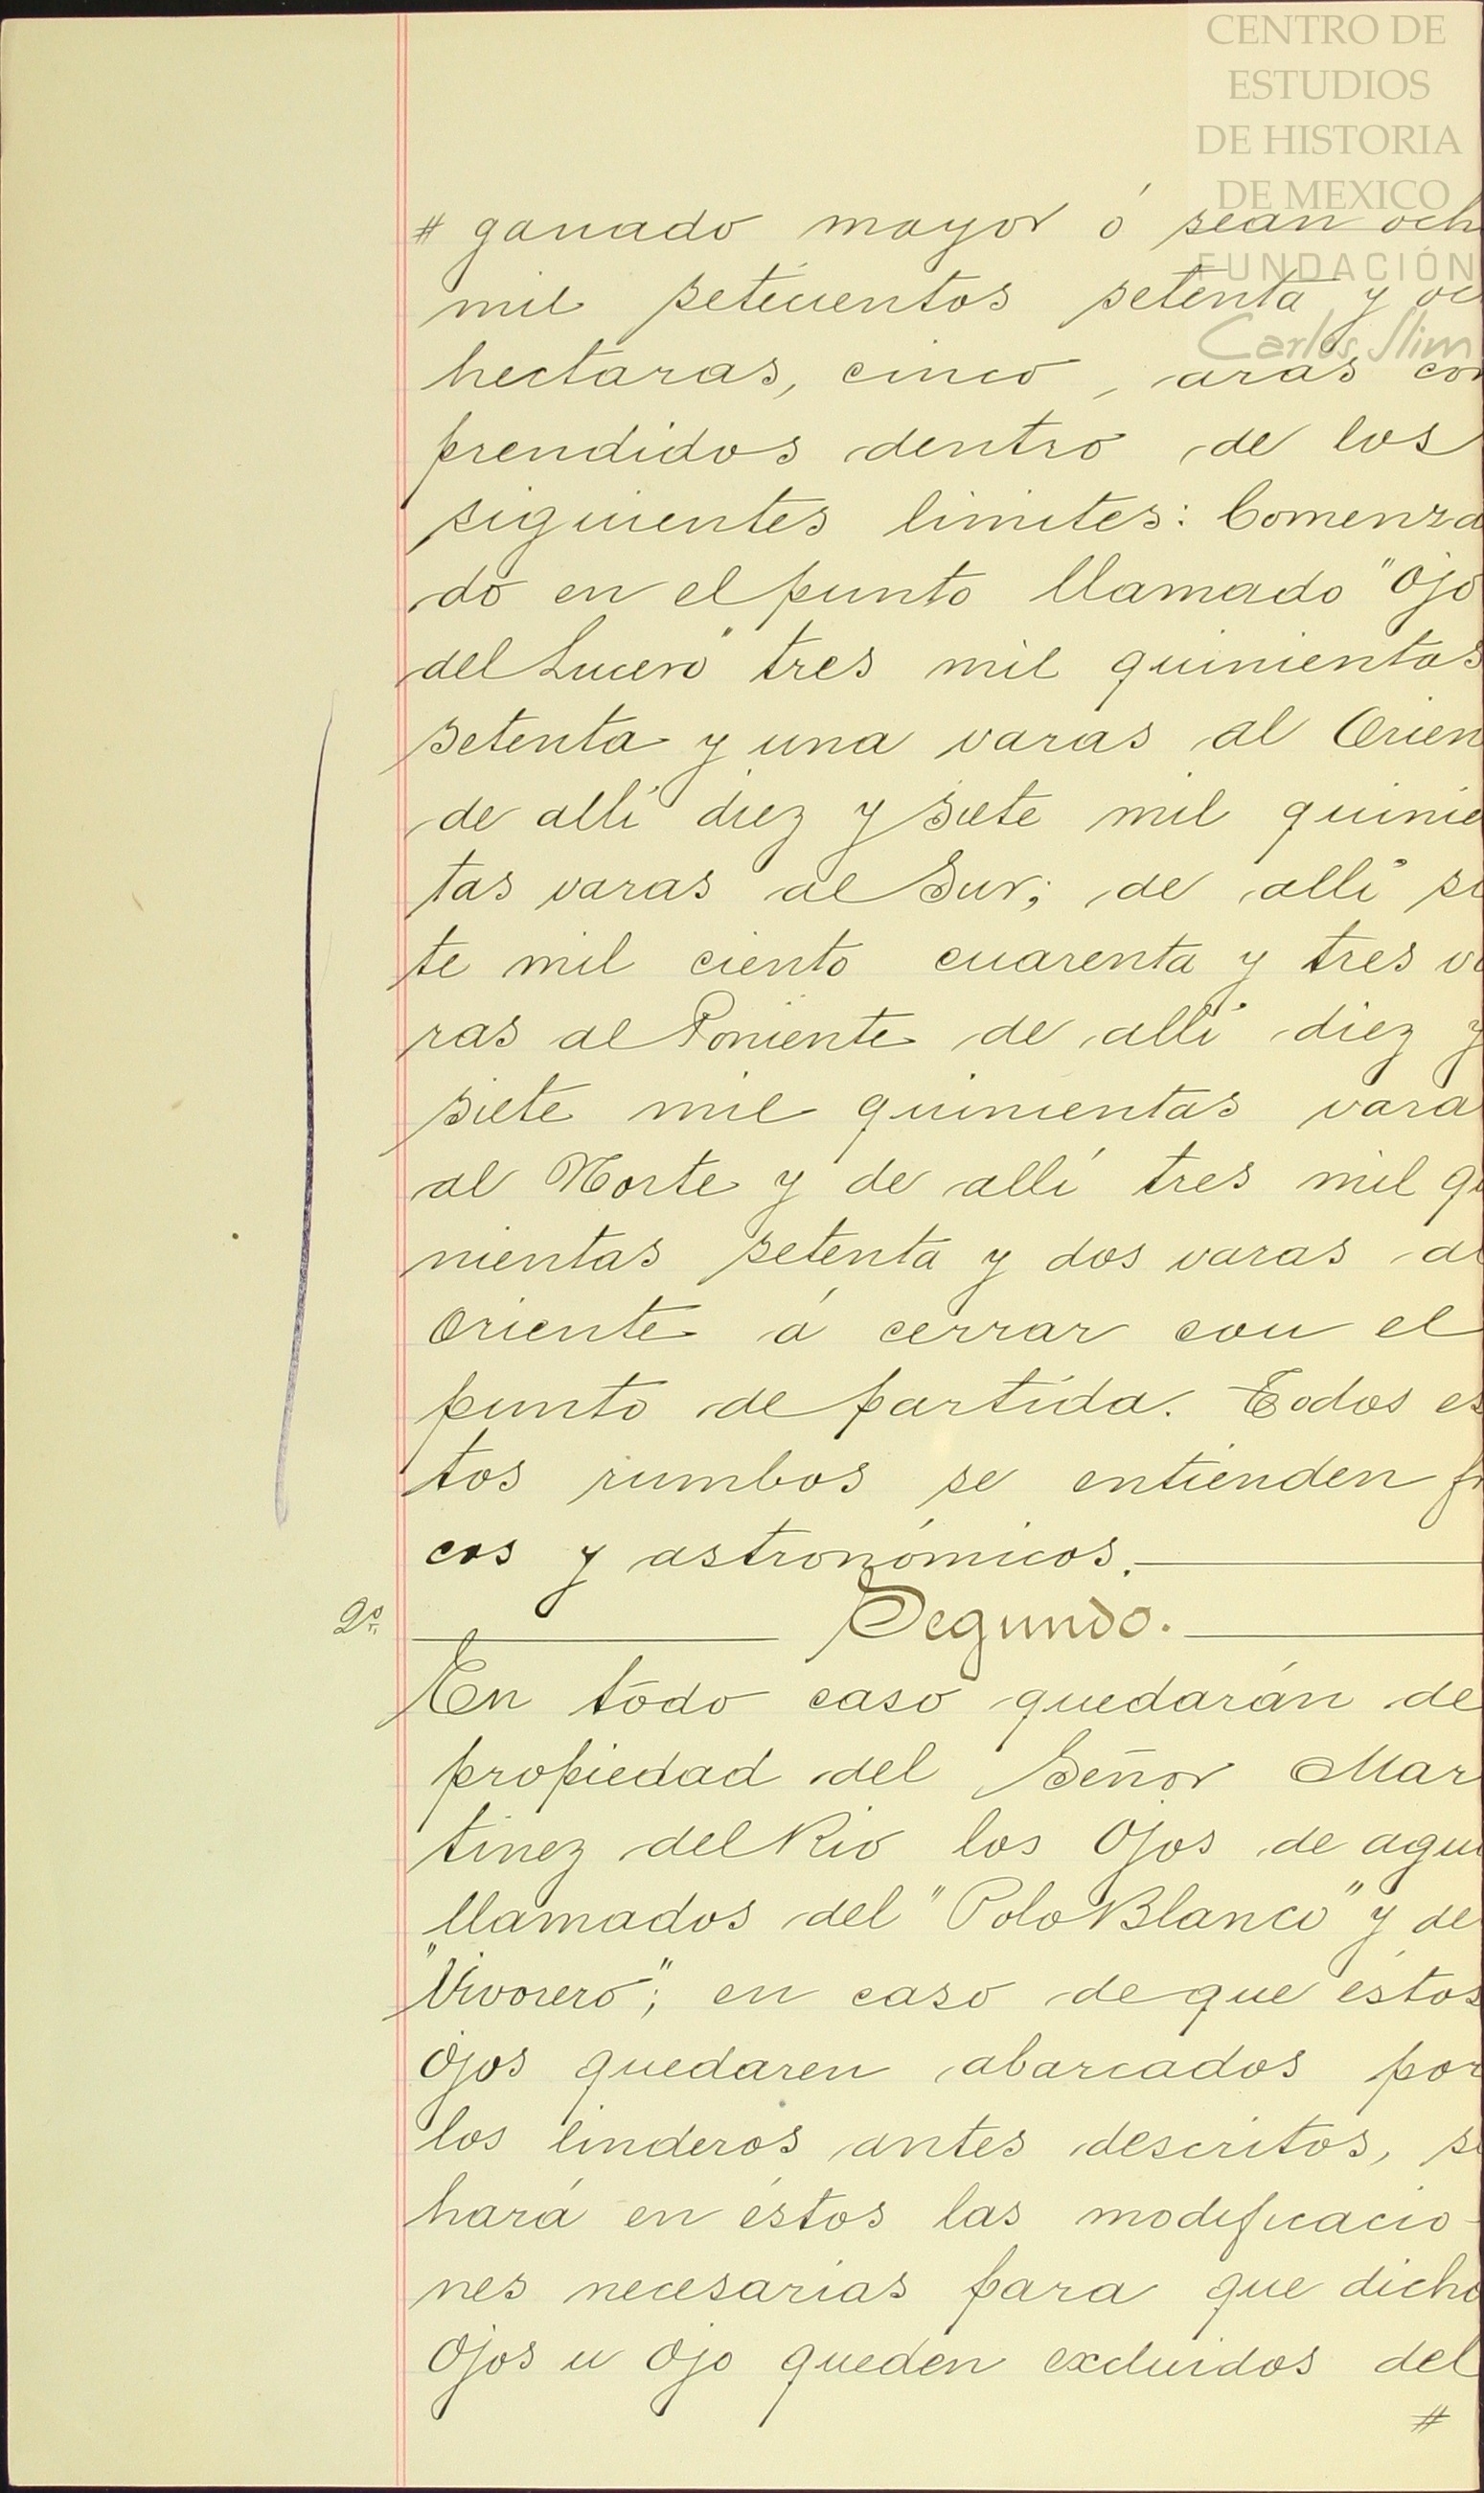 CENTRO DE
ESTUDIOS
DE HISTORIA
DE MEXICO
FUNDACIÓN
Carlos Slim
# ganado mayor ó sean och
mil setecientos setenta y oc
hectaras, cinco, aras com
prendidos dentro de los
siguientes limites: Comenza
do en el punto llamado "Ojo
del Lucero" tres mil quinientas
setenta y una varas al Orien
de allí diez y siete mil quinie
tas varas al Sur; de allí si
te mil ciento cuarenta y tres va
ras al Poniente de allí diez y
siete mil quinientas vara
al Norte y de allí tres mil qu
nientas setenta y dos varas al
Oriente á cerrar con el
punto de partida. Todos es
tos rumbos se entienden fr
cos y astronómicos.
2º. Segundo.
En todo caso quedarán de
propiedad del Señor Mar
tinez del Rio los Ojos de agua
llamados del "Polo Blanco" y de
"Vivorero"; en caso de que éstos
Ojos quedaren abarcados por
los linderos antes descritos, se
hará en éstos las modificacio-
nes necesarias para que dicho
Ojos u Ojo queden excluidos del
#